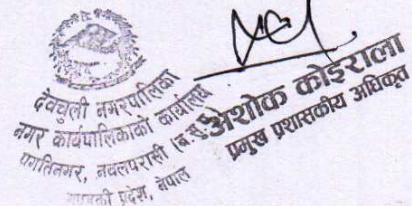 देवचुली नगरपालिका
नगर कार्यपालिकाको कार्यालय
प्रगतिनगर, नवलपरासी (ब.सु.
गण्डकी प्रदेश, नेपाल
अशोक कोइराला
प्रमुख प्रशासकीय अधिकृत